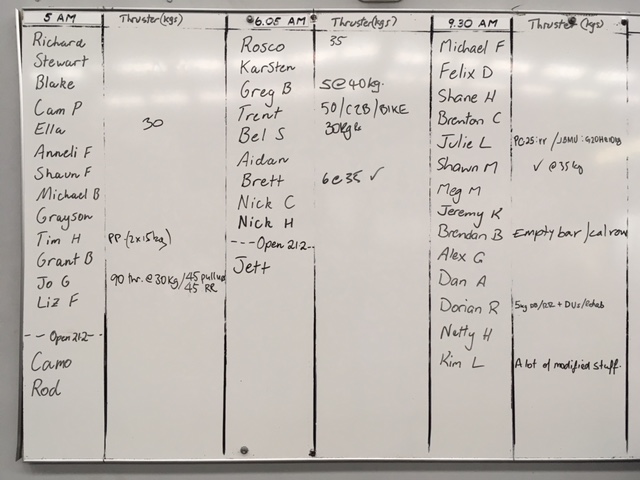 5 AM Thruster (kgs)
Richard
Stewart
Blake
Cam P
Ella 30
Anneli F
Shaun F
Michael B
Grayson
Tim H PP (2x15kg)
Grant B
Jo G 90 thr. @ 30kg/45 pullup
45 RR
Liz F
-- Open 21.2 --
Camo
Rod
6.05 AM Thruster (kgs)
Rosco 35
Karsten
Greg B 5@40kg.
Trent 50/C2B/BIKE
Bel S 30kgs
Aidan
Brett 6@35 ✓
Nick C
Nick H
--- Open 21.2 --
Jett
9.30 AM Thruster (kgs)
Michael F
Felix D
Shane H
Brenton C
Julie L
Shawn M ✓ @ 35kg
Meg M
Jeremy K
Brendan B Empty bar / cal row
Alex G
Dan A
Dorian R + DUs/
Natty H
Kim L A lot of modified stuff.